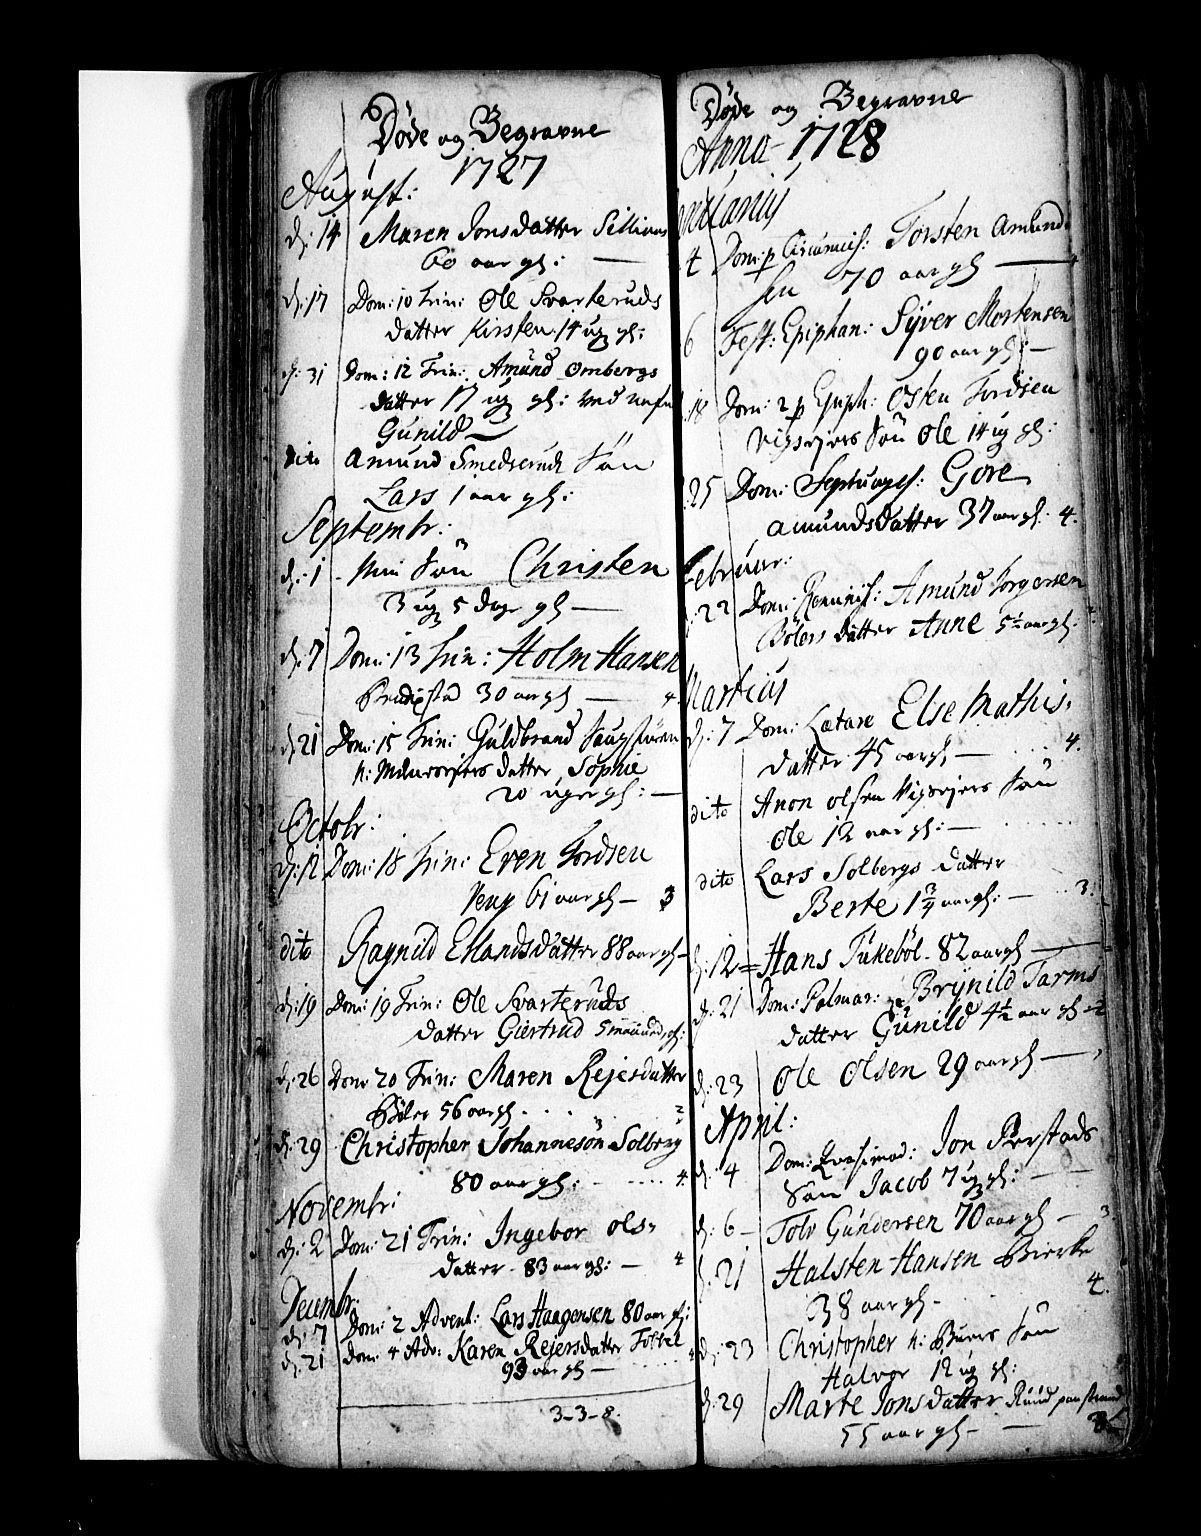 Døde og Begravne
1727
August:
d: 14 Maren Jonsdatter
60 aar gl: —
d: 17 Dom: 10 Trin: Ole Svarteruds
datter Kirsten 14 ug gl:
d: 31 Dom: 12 Trin: Amund Ombergs
datter 17 ug gl: ved nafn
Gunild —
dito Amund Smedserud Søn
Lars 1 aar gl:
Septembr:
d: 1 - Min Søn Christen
3 ug 5 dage gl —
d: 7 Dom: 13 Trin: Holm Hansen
30 aar gl — 4.
d: 21 Dom: 15 Trin: Guldbrand
n: datter Sophie
20 uger gl: —
Octobr:
d: 12 Dom: 18 Trin: Even Tordsen
61 aar gl — 3
dito Ragnild Ellandsdatter 88 aar gl —
d: 19 Dom: 19 Trin: Ole Svarteruds
datter Giertrud 5 maaned gl:
d: 26 Dom 20 Trin: Maren Rejersdatter
Bøler 56 aar gl . . . 2
d: 29 Christopher Johannesøn Solberg
80 aar gl: - . . . . 4.
Novembr:
d: 2 Dom: 21 Trin: Ingebor ols-
datter - 83 aar gl: — 4
Decembr:
d: 7 Dom: 2 Advent: Lars Haagensen 80 aar gl:
d: 21 Dom: 4 Adv: Karen Rejersdatter
93 aar gl — 4
3-3-8.
Døde og Begravne
Anno - 1728
Januarius
4 Dom: p Circumcis: Torsten Amund-
sen 70 aar gl —
6 Fest: Epiphan: Syver Mortensen
90 aar gl: —
18 Dom: 2 p Epiph: Osten Tordsen
Vigsejers Søn Ole 14 ug gl:
25 Dom: Septuages: Gore
Amundsdatter 37 aar gl: 4.
Februar:
22 Dom: Reminis: Amund Torgersen
Bølers datter Anne 5½ aar gl:
Martius
d: 7 Dom: Lætare Else Mathis-
datter 45 aar gl — . . . . 4.
dito Anon olsen Vigsejers Søn
Ole 12 aar gl: — . . . . .
dito Lars Solbergs datter
Berte 1¾ aar gl: — . . 3.
d: 12 = Hans Tukebøl - 82 aar gl —
d: 21 Dom: Palmar: Brynild Tarms
datter Gunild 4½ aar gl - 2
d: 23 Ole Olsen 29 aar gl —
April:
d: 4 Dom: Quasimod: Jon Perstads
Søn Jacob 7 ug gl: —
d: 6 - Tolv Gundersen 70 aar gl — 3.
d: 21 Halsten Hansen Bierke
38 aar gl - 4.
d: 23 Christopher n: Buers Søn
Halvor 12 ug gl:
d: 29 Marte Jonsdatter Ruud
55 aar gl — —